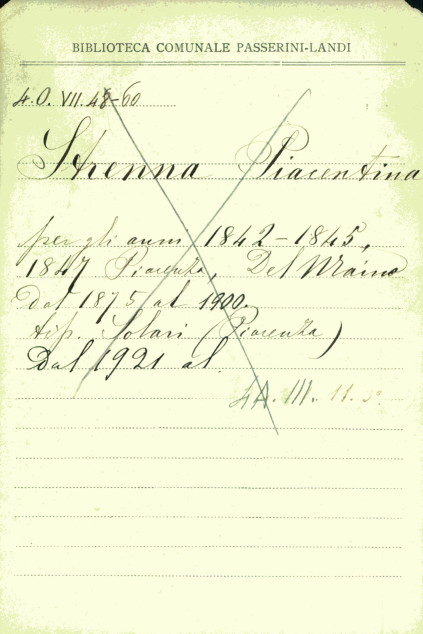 BIBLIOTECA COMUNALE PASSERINI-LANDI
4.O. VII. 48-60
Strenna Piacentina
per gli anni 1842-1845,
1847 Piacenza, Del Maino
Dal 1875 al 1900.
tip. Solari (Piacenza)
Dal 1921 al.
4A. III. 11.